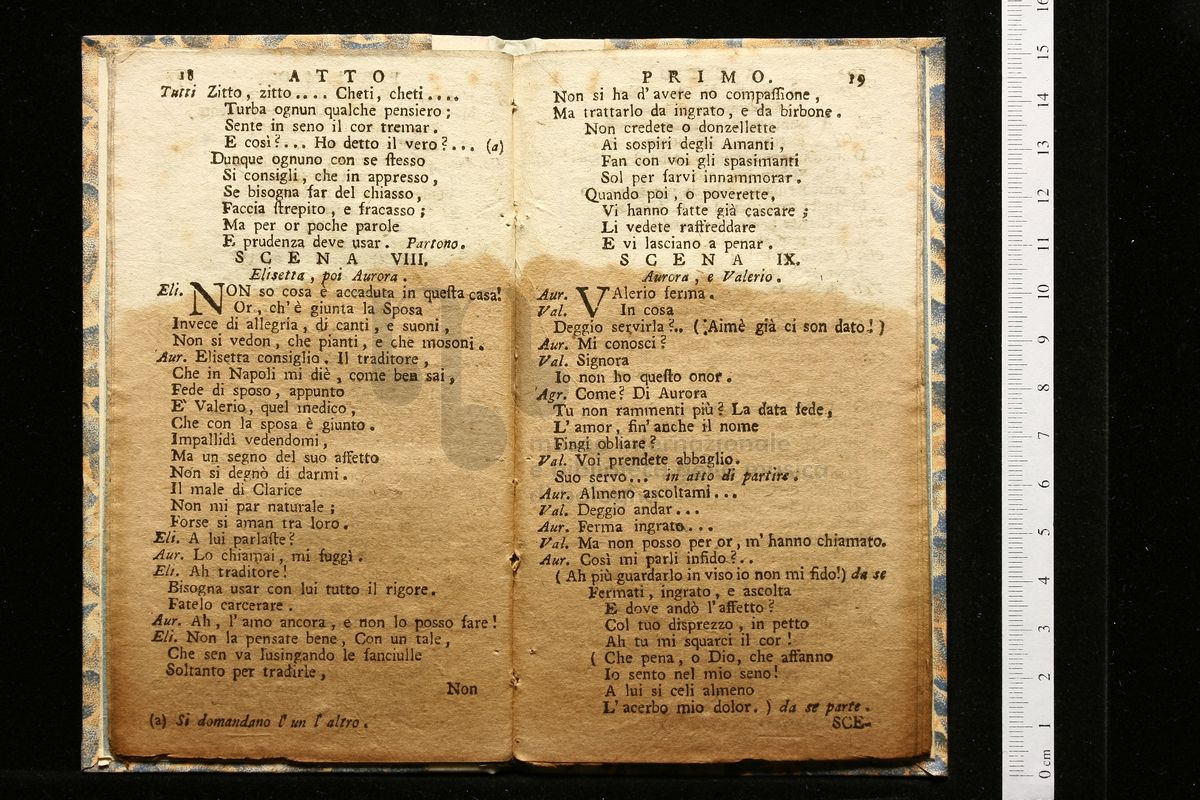 18 ATTO
Tutti Zitto, zitto.... Cheti, cheti....
Turba ognun qualche pensiero;
Sente in seno il cor tremar.
E così?... Ho detto il vero?... (a)
Dunque ognuno con se stesso
Si consigli, che in appresso,
Se bisogna far del chiasso,
Faccia strepito, e fracasso;
Ma per or poche parole
E prudenza deve usar. Partono.
SCENA VIII.
Elisetta, poi Aurora.
Eli. NON so cosa è accaduta in questa casa!
Or, ch' è giunta la Sposa
Invece di allegria, di canti, e suoni,
Non si vedon, che pianti, e che mosoni.
Aur. Elisetta consiglio. Il traditore,
Che in Napoli mi diè, come ben sai,
Fede di sposo, appunto
E' Valerio, quel medico,
Che con la sposa è giunto.
Impallidì vedendomi,
Ma un segno del suo affetto
Non si degnò di darmi.
Il male di Clarice
Non mi par naturale;
Forse si aman tra loro.
Eli. A lui parlaste?
Aur. Lo chiamai, mi fuggì.
Eli. Ah traditore!
Bisogna usar con lui tutto il rigore.
Fatelo carcerare.
Aur. Ah, l' amo ancora, e non lo posso fare!
Eli. Non la pensate bene, Con un tale,
Che sen va lusingando le fanciulle
Soltanto per tradirle,
Non
(a) Si domandano l' un l' altro.
PRIMO. 19
Non si ha d' avere no compassione,
Ma trattarlo da ingrato, e da birbone.
Non credete o donzellette
Ai sospiri degli Amanti,
Fan con voi gli spasimanti
Sol per farvi innammorar.
Quando poi, o poverette,
Vi hanno fatte già cascare;
Li vedete raffreddare
E vi lasciano a penar.
SCENA IX.
Aurora, e Valerio.
Aur. VAlerio ferma.
Val. In cosa
Deggio servirla?.. (Aimè già ci son dato!)
Aur. Mi conosci?
Val. Signora
Io non ho questo onor.
Agr. Come? Di Aurora
Tu non rammenti più? La data fede,
L' amor, fin' anche il nome
Fingi obliare?
Val. Voi prendete abbaglio.
Suo servo... in atto di partire.
Aur. Almeno ascoltami...
Val. Deggio andar...
Aur. Ferma ingrato...
Val. Ma non posso per or, m' hanno chiamato.
Aur. Così mi parli infido?..
(Ah più guardarlo in viso io non mi fido!) da se
Fermati, ingrato, e ascolta
E dove andò l' affetto?
Col tuo disprezzo, in petto
Ah tu mi squarci il cor!
(Che pena, o Dio, che affanno
Io sento nel mio seno!
A lui si celi almeno
L' acerbo mio dolor.) da se parte.
SCE-
0 cm 1 2 3 4 5 6 7 8 9 10 11 12 13 14 15 16